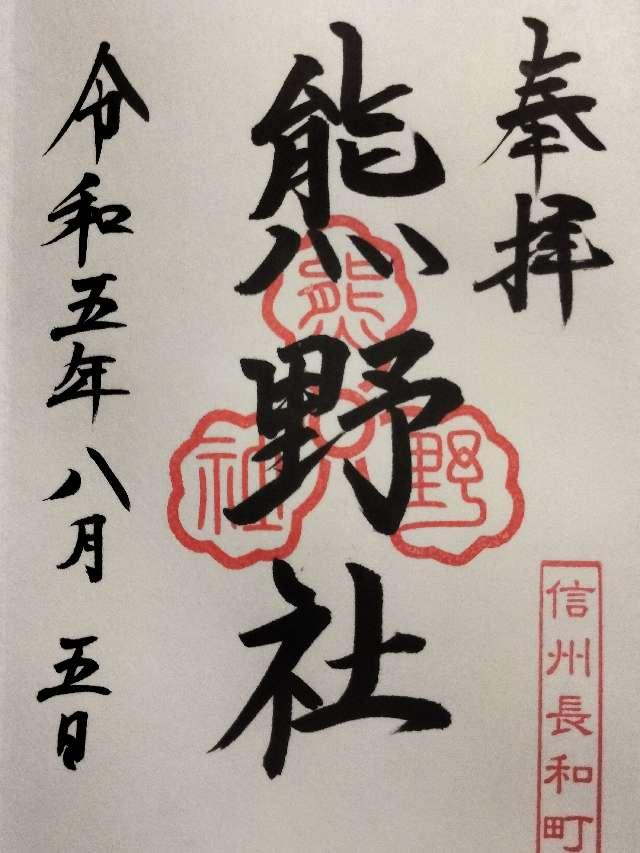 奉拝
信州長和町
熊野社
熊
野
社
令和五年八月五日